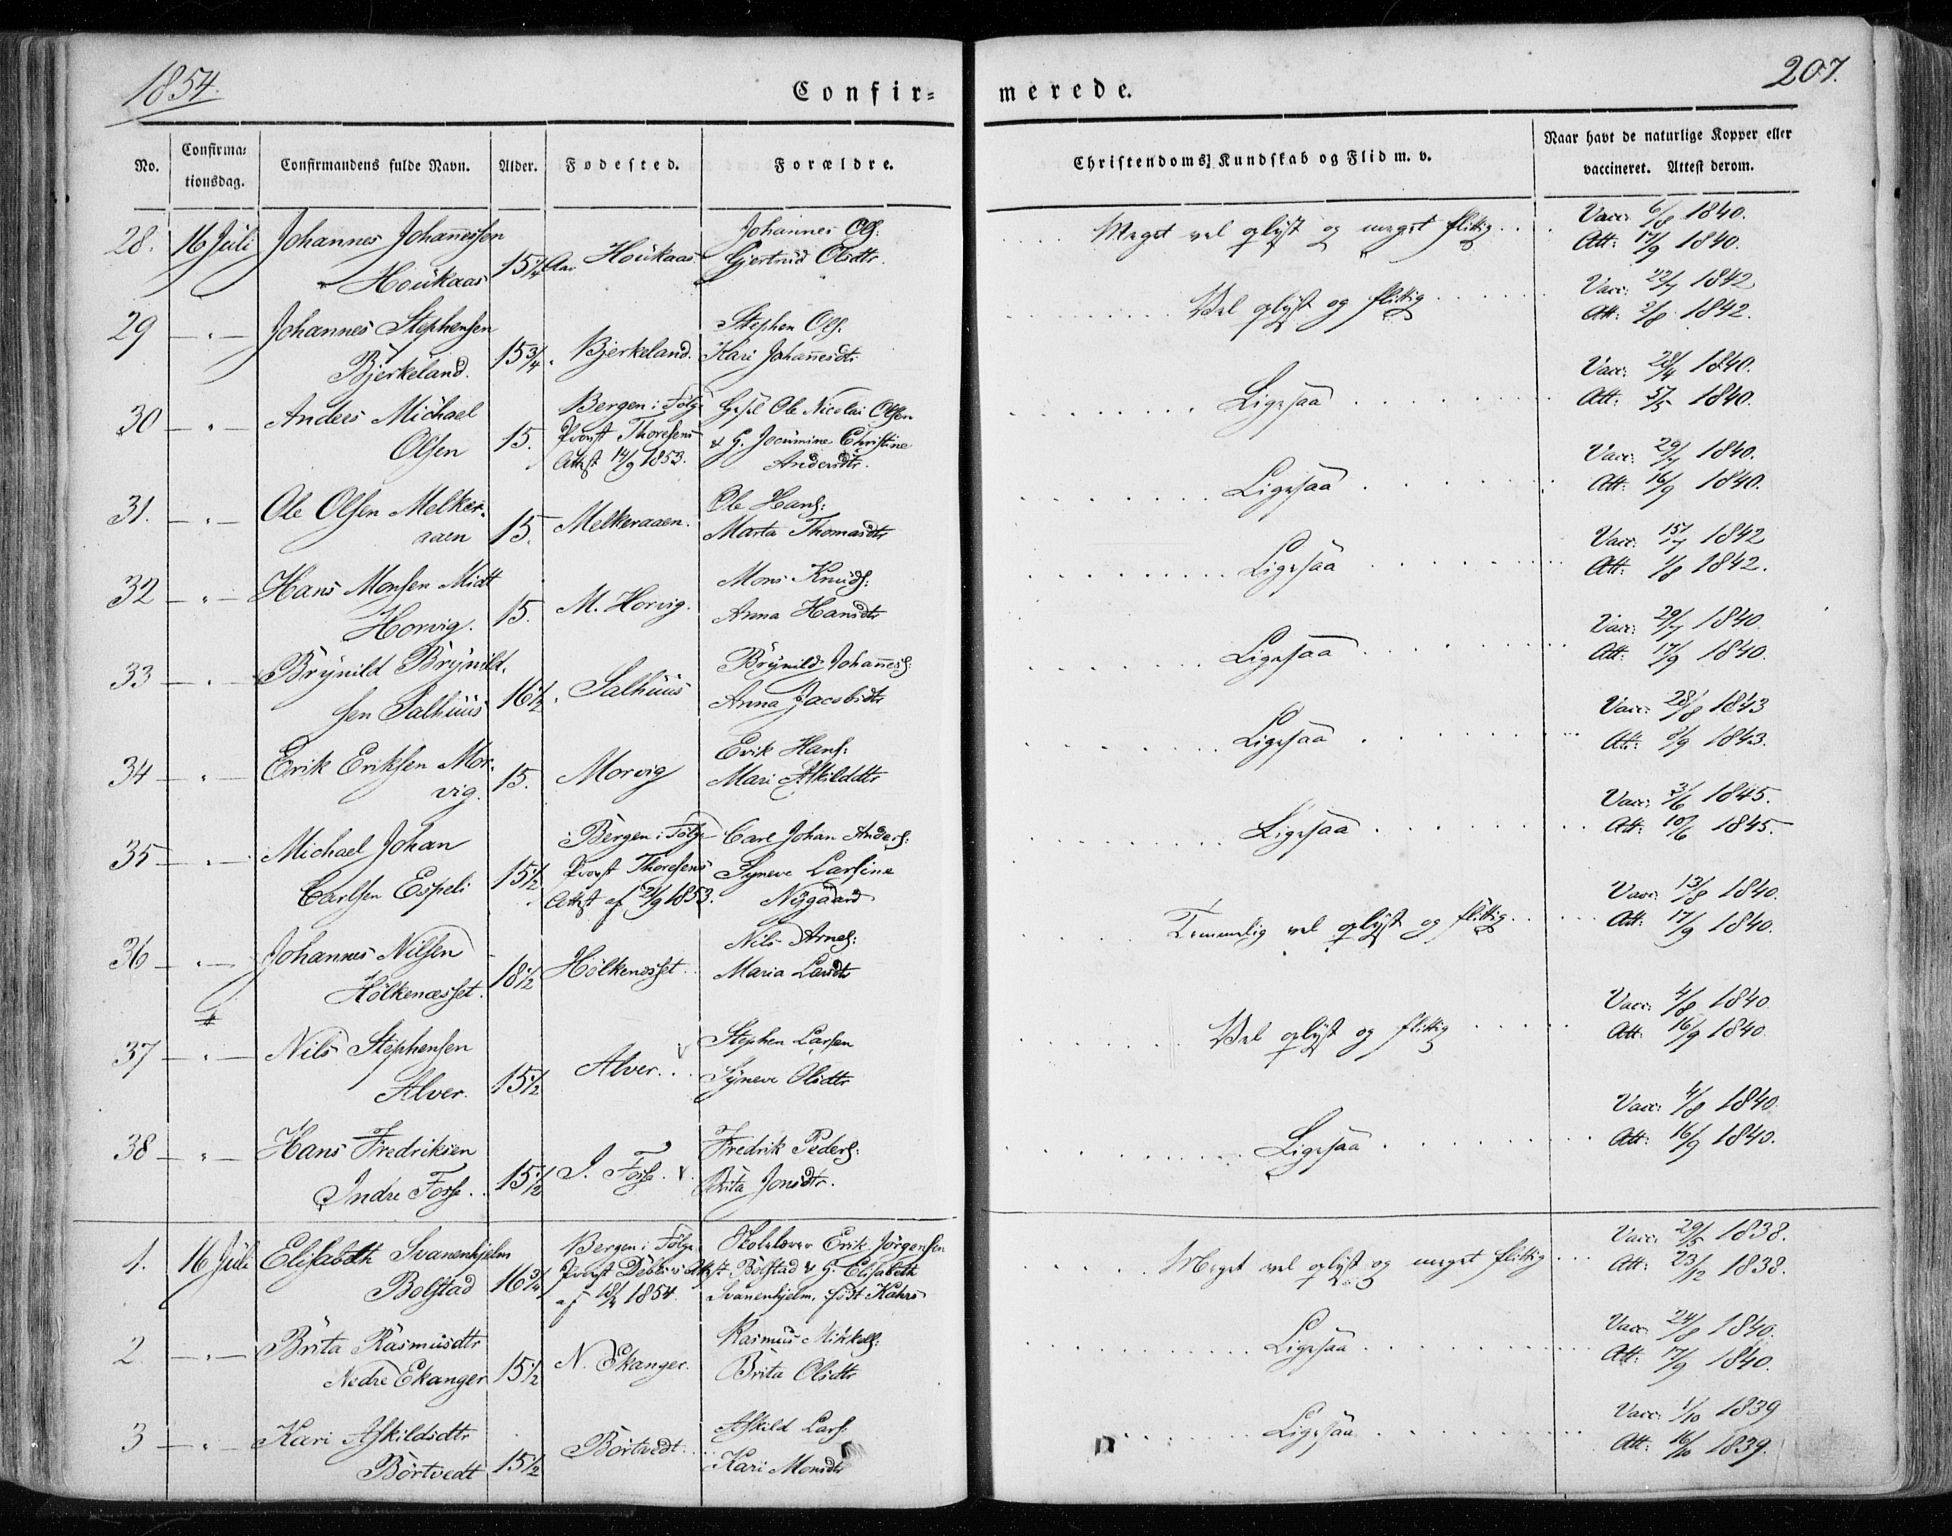 1854.
Confir=
merede.
207.
No.
Confirma=
tionsdag.
Confirmandens fulde Navn.
Alder.
Fødested.
Forældre.
Christendoms Kundskab og Flid m. v.
Naar havt de naturlige Kopper eller
vaccineret. Attest derom.
28. 16 Juli Johannes Johannessen Johannes Ols: Meget vel oplyst og meget flittig Vacc: 6/8 1840.
Houkaas 15 1/4 Aar Houkaas Gjertrud Olsdtr. Att: 17/9 1840.
29 — " — Johannes Stephensen Stephen Ols. Vel oplyst og flittig Vacc: 22/7 1842
Bjerkeland. 15 3/4. Bjerkeland. Kari Johannesdtr Att: 2/8 1842.
30 — " — Anders Michael Bergen i Følge Gesel Ole Nicolai Olsen Ligesaa Vacc: 28/4 1840.
Olsen 15. Provst Thoresens & G. Jocumine Christine Att: 5/5 1840.
Attest 14/9 1853. Andersdtr.
31. — " — Ole Olsen Melker- Ole Hans: Ligesaa Vacc: 29/7 1840.
aaen 15. Melkeraaen. Marta Thomasdtr Att: 16/9 1840.
32 — " — Hans Monsen Midt Mons Knuds: Ligesaa Vacc: 15/7 1842
Horvig. 15. M. Horvig. Anna Hansdtr Att: 1/8 1842.
33 — " — Brynild Brynild- Brynild Johanness: Ligesaa Vacc: 29/7 1840.
sen Salhuus 16 1/2. Salhuus Anna Jacobsdtr Att: 17/9 1840.
34 — " — Erik Eriksen Mor- Erik Hans: Ligesaa Vacc: 28/8 1843
vig. 15. Morvig Mari Askilddtr Att: /9 1843.
35 — " — Michael Johan Bergen i Følge Carl Johan Anders: Ligesaa Vacc: 3/6 1845.
Carlsen Espeli 15 1/2 Provst Thoresens Syneve Larsine Att: 10/6 1845.
Attest af 21/9 1853. Nygaard
36 — " — Johannes Nilsen Nils Arnes: Temmelig vel oplyst og flittig Vacc: 13/8 1840.
Hølkenæsset. 18 1/2 Hølkenæsset Maria Larsdtr Att: 17/9 1840.
37 — " — Nils Stephensen Stephen Larsen Vel oplyst og flittig Vacc: 4/8 1840
Alver. 15 1/2 Alver. Syneve Olsdtr Att: 16/9 1840.
38 — " — Hans Fredriksen Fredrik Peders: Ligesaa Vacc: 4/8 1840
Indre Fosse. 15 1/2 I. Fosse. Brita Jonsdtr. Att: 16/9 1840.
1. 16 Juli Elisabeth Svanenhjelm Bergen i Følge Skolelærer Erik Jørgensen Meget vel oplyst og meget flittig Vacc: 29/5 1838.
Bolstad 16 3/4 Provst Attest Bolstad & G. Elisabeth Att: 23/12 1838.
af 1854. Svanenhjelm, født Kahrs
2. — " — Brita Rasmusdtr Rasmus Mikkels: Ligesaa Vacc: 24/8 1840.
Nedre Ekanger 15 1/2 N. Ekanger. Brita Olsdtr Att: 17/9 1840.
3 — " — Kari Askildsdtr Askild Lars: Ligesaa Vacc: 1/10 1839
Børtvedt 15 1/2 Børtvedt. Kari Monsdtr Att: 16/10 1839.